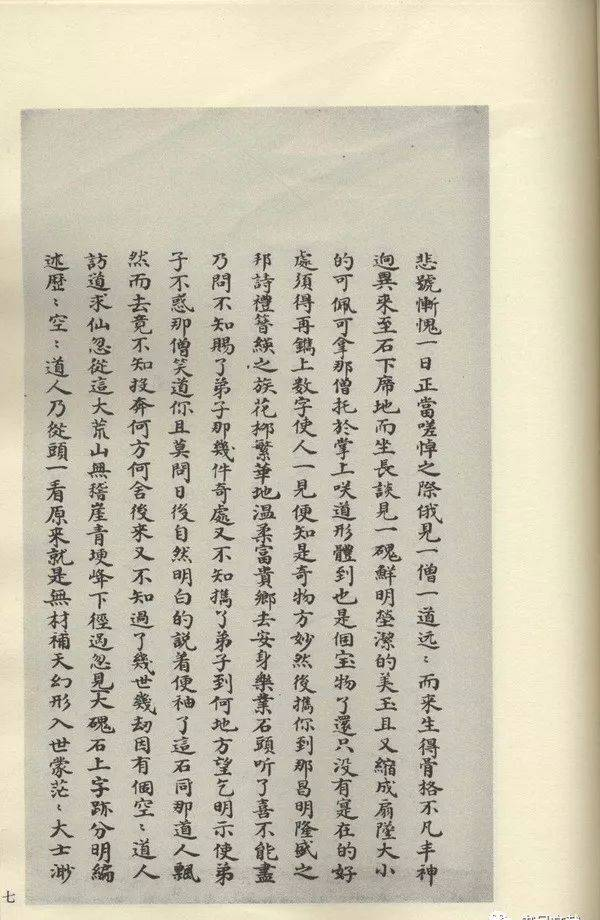 悲號慚愧一日正當嗟悼之際俄見一僧一道远〻而来生得骨格不凡丰神
逈異来至石下席地而坐長談見一磈鮮明瑩潔的美玉且又縮成扇墜大小
的可佩可拿那僧托於掌上咲道形體到也是個宝物了還只没有寔在的好
處須得再鐫上数字使人一見便知是奇物方妙然後擕你到那昌明隆盛之
邦詩禮簪纓之族花柳繁華地温柔富貴鄉去安身樂業石頭听了喜不能盡
乃問不知賜了弟子那幾件奇處又不知擕了弟子到何地方望乞明示使弟
子不惑那僧笑道你且莫問日後自然明白的説着便袖了這石同那道人飄
然而去竟不知投奔何方何舍後来又不知過了幾世幾劫因有個空〻道人
訪道求仙忽從這大荒山無稽崖青埂峰下徑過忽見大磈石上字跡分明編
述歷〻空〻道人乃從頭一看原来就是無材補天幻形入世蒙茫〻大士渺
七